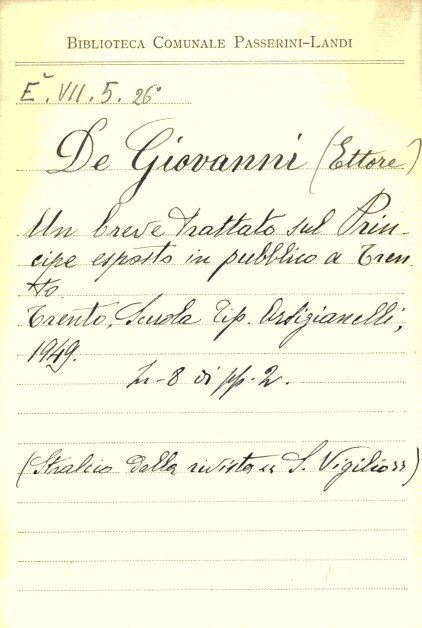 BIBLIOTECA COMUNALE PASSERINI-LANDI
E˘. VII. 5. 26°
De Giovanni (Ettore)
Un breve trattato sul Prin-
cipe esposto in pubblico a Tren-
to.
Trento, Scuola Tip. Artigianelli,
1949.
In-8 di pp. 2.
(Stralcio dalla rivista «S. Vigilio»)